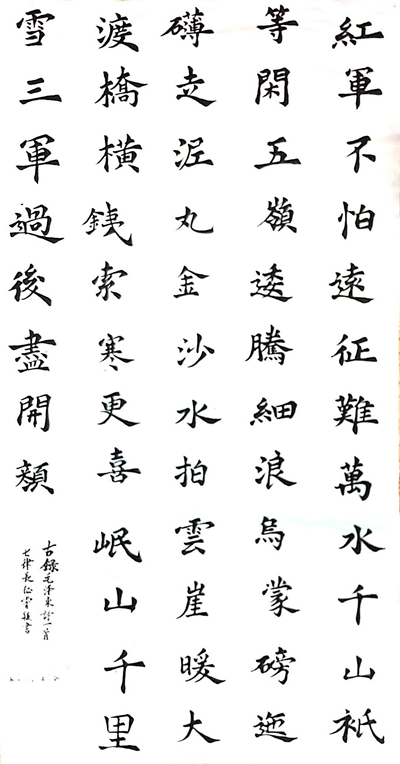 紅軍不怕遠征難萬水千山祇
等閑五嶺逶騰細浪烏蒙磅迤
礴走泥丸金沙水拍雲崖暖大
渡橋橫銕索寒更喜岷山千里
雪三軍過後盡開顏
古錄毛澤東詩一首
七律長征書